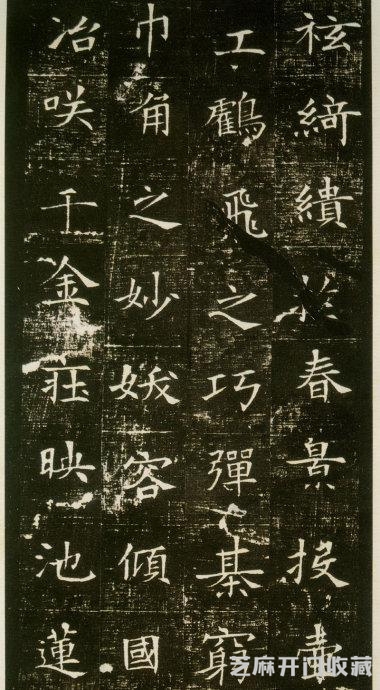 袨綺繢於春景投壺
工鸖飛之巧彈棊窮
巾角之妙妖容傾國
冶咲千金莊映池蓮
芝麻开门收藏